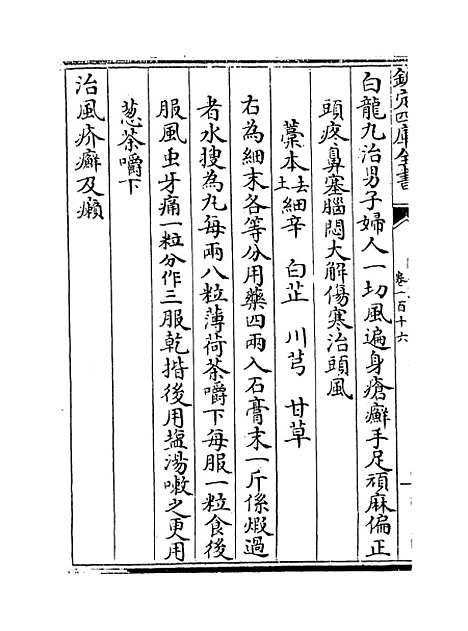 欽定四庫全書
卷一百十六
白龍丸治男子婦人一切風遍身瘡癬手足頑麻偏正
頭疼鼻塞腦悶大解傷寒治頭風
藁本去土細辛　白芷　川芎　甘草
右為細末各等分用藥四兩入石膏末一斤係煆過
者水搜為丸每兩八粒薄荷茶嚼下每服一粒食後
服風虫牙痛一粒分作三服乾揩後用塩湯嗽之更用
葱茶嚼下
治風疥癬及癩